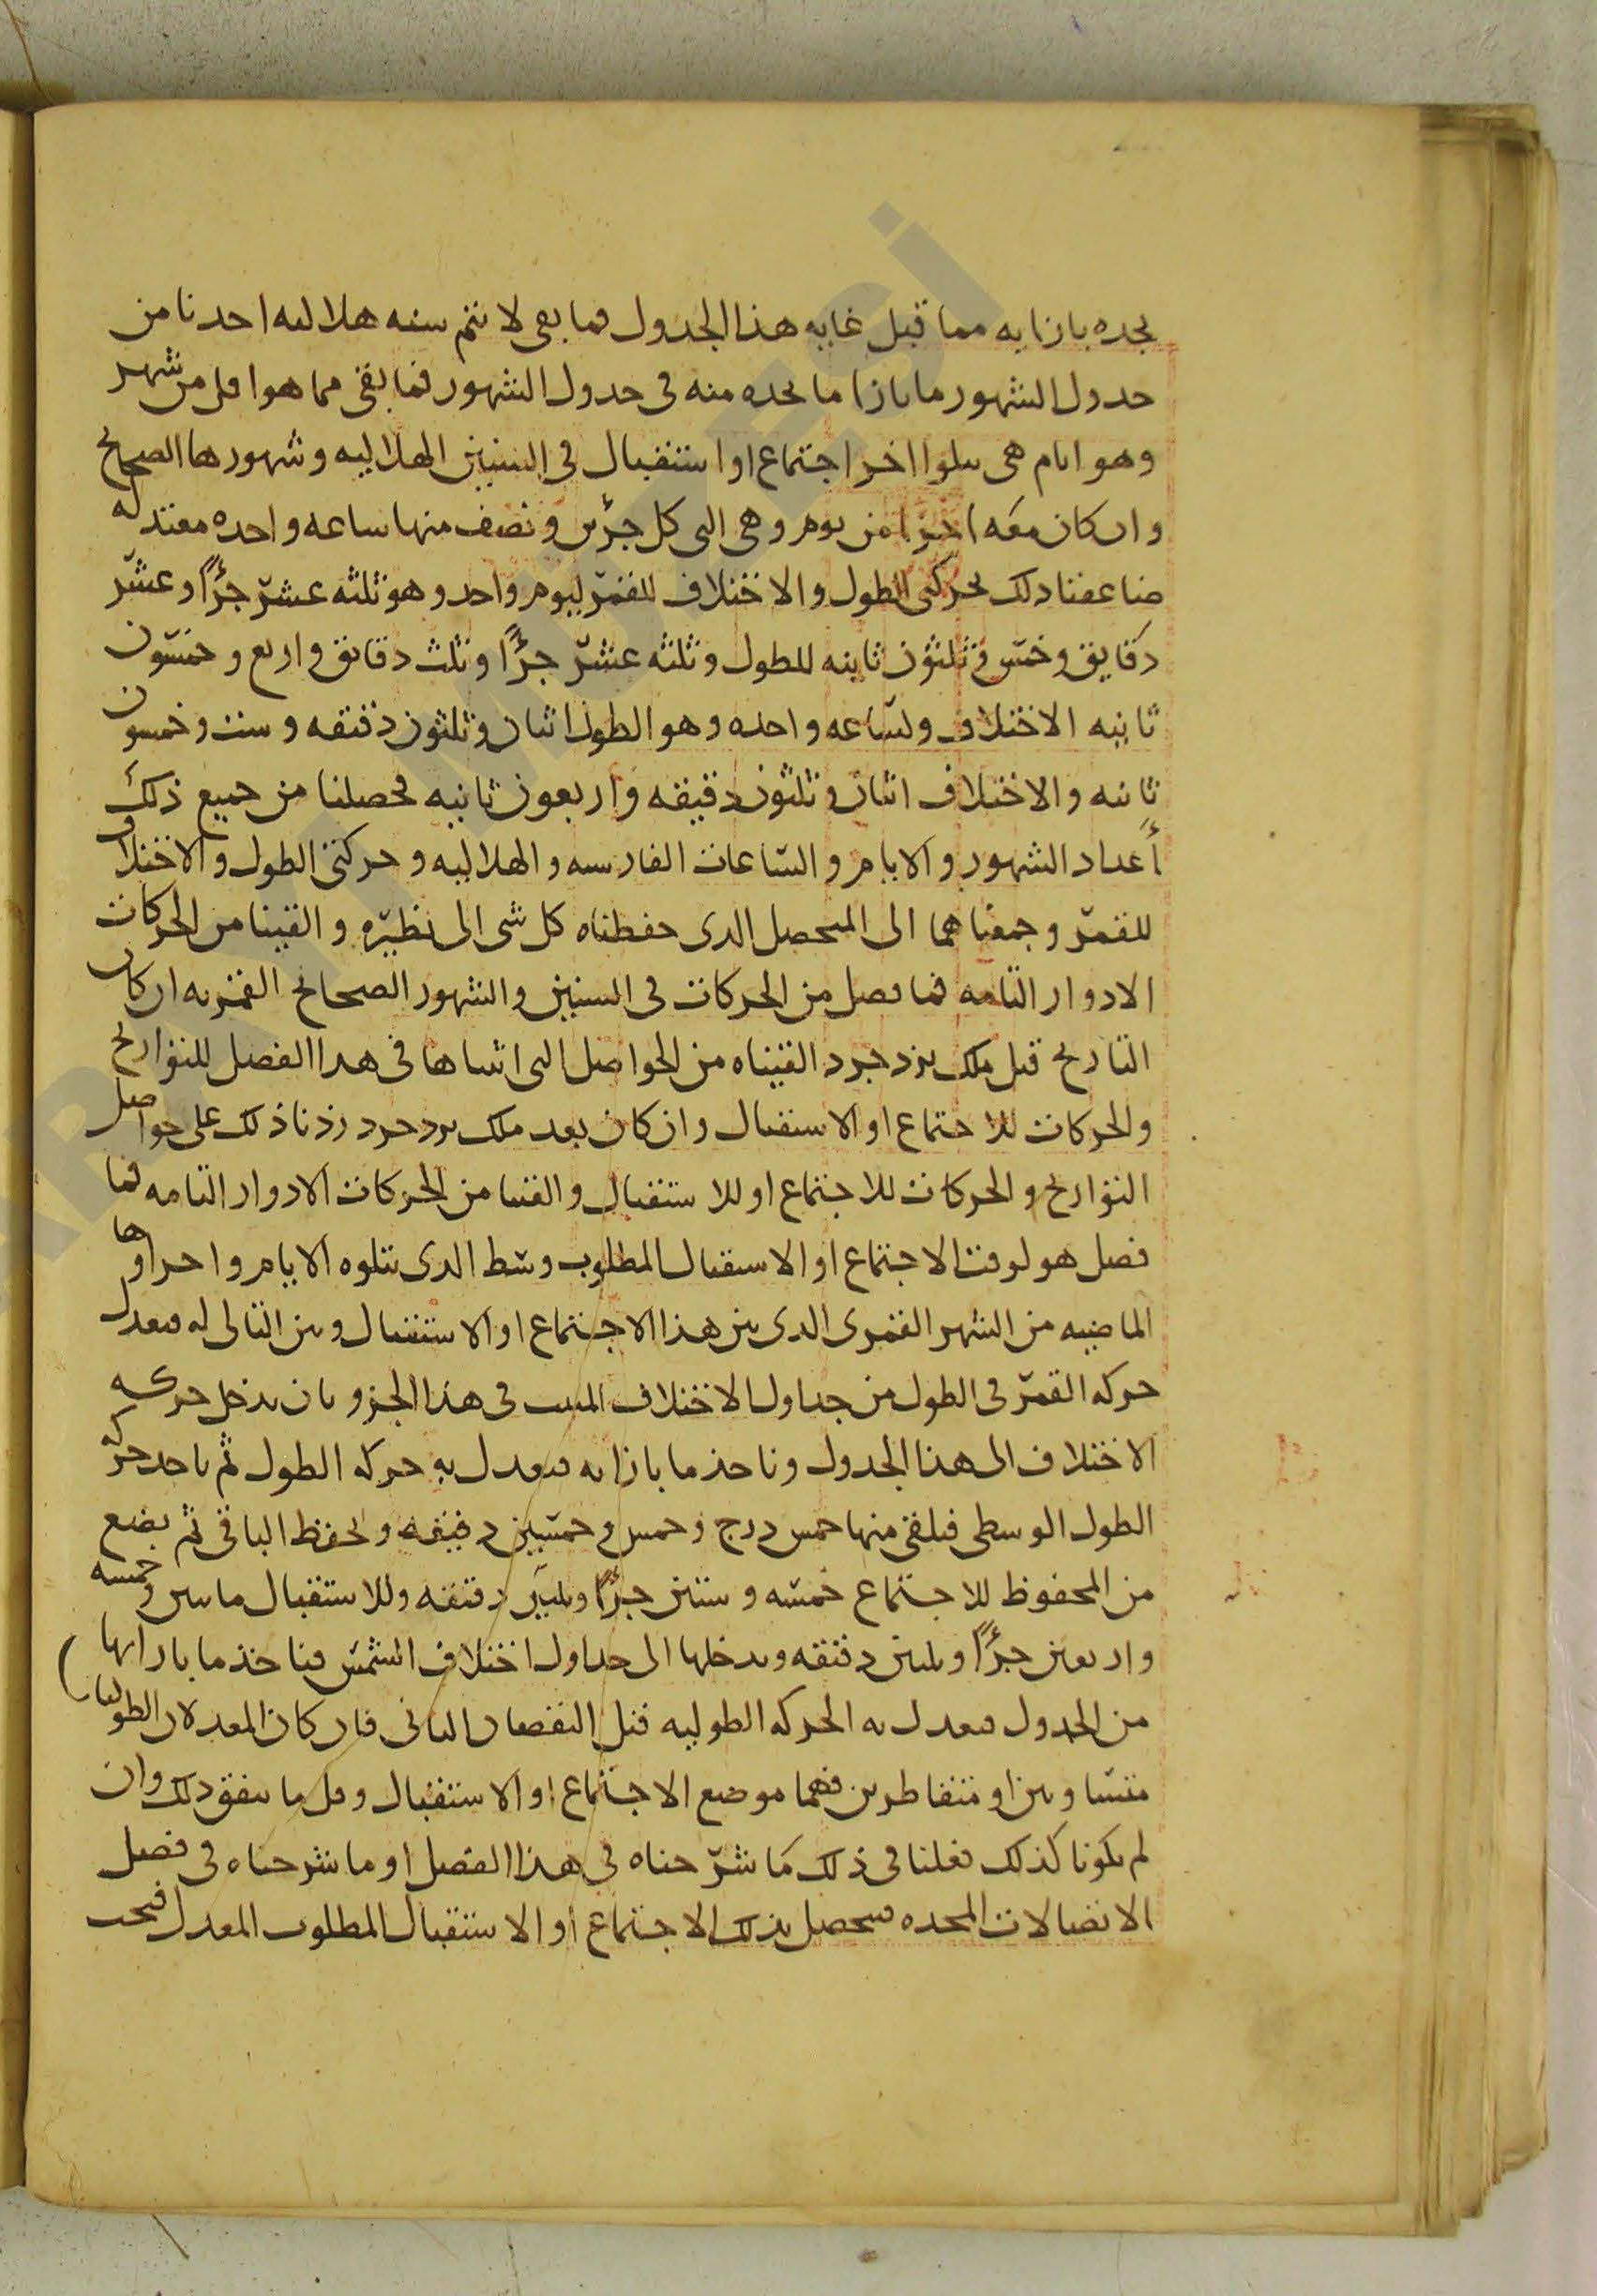 نجده بازايه مما قبل غايه هذا الجدول فما بقى لا يتم سنه هلاليه اخذنا من
جدول الشهور ما بازا ما نجده منه فى جدول الشهور فما بقى مما هو اقل من شهر
وهو ايام هى يتلوا اخر اجتماع او استقبال فى السنين الهلاليه وشهورها الصحاح
وان كان معه اجزا من يوم وهى التى كل جزئين ونصف منها ساعه واحده معتدله
ضاعفنا ذلك بحركتى الطول والاختلاف للقمر ليوم واحد وهو ثلثه عشر جزءًا وعشر
دقايق وخمس وثلثون ثانيه للطول وثلثه عشر جزءًا وثلث دقايق واربع وخمسون
ثانيه الاختلاف ولساعه واحده وهو الطول اثنان وثلثون دقيقه وست وخمسون
ثانيه والاختلاف اثنان وثلثون دقيقه واربعون ثانيه فحصلنا من جميع ذلك
أعداد الشهور والايام والساعات الفارسيه والهلاليه وحركتى الطول والاختلاف
للقمر وجمعناهما الى المتحصل الذى حفظناه كل شى الى نظيره والقينا من الحركات
الادوار التامه فما فضل من الحركات فى السنين والشهور الصحاح القمريه ان كان
التاريخ قبل ملك يزدجرد القيناه من الحواصل التى اثبتناها فى هذا الفصل للتواريخ
والحركات للاجتماع او الاستقبال وان كان بعد ملك يزدجرد زدنا ذلك على حواصل
التواريخ والحركات للاجتماع او للاستقبال والقينا من الحركات الادوار التامه فما
فضل هو لوقت الاجتماع او الاستقبال المطلوب وسط الذى يتلوه الايام واجزاوها
الماضيه من الشهر القمرى الذى بين هذا الاجتماع او الاستقبال وبين التالى له فيعدل
حركه القمر فى الطول من جداول الاختلاف المثبت فى هذا الجزو بان ندخل حركه
الاختلاف الى هذا الجدول وناخذ ما بازايه فيعدل به حركه الطول ثم ناخذ حركه
الطول الوسطى فنلقى منها خمس درج وخمس وخمسين دقيقه ونحفظ الباقى ثم نضع
من المحفوظ للاجتماع خمسه وستين جزءًا وثلثين دقيقه وللاستقبال مايتين وخمسه
واربعين جزءًا وثلثين دقيقه وندخلها الى جداول اختلاف الشمس فناخذ ما بازايها
من الجدول فيعدل به الحركه الطوليه قبل النقصان الثانى فان كان المعدلان الطوليا
متساويين او متقاطرين فهما موضع الاجتماع او الاستقبال وقل ما يتفق ذلك وان
لم يكونا كذلك فعلنا فى ذلك كما شرحناه فى هذا الفصل او ما شرحناه فى فصل
الاتصالات المحده فيحصل بذلك الاجتماع او الاستقبال المطلوب المعدل فيجب